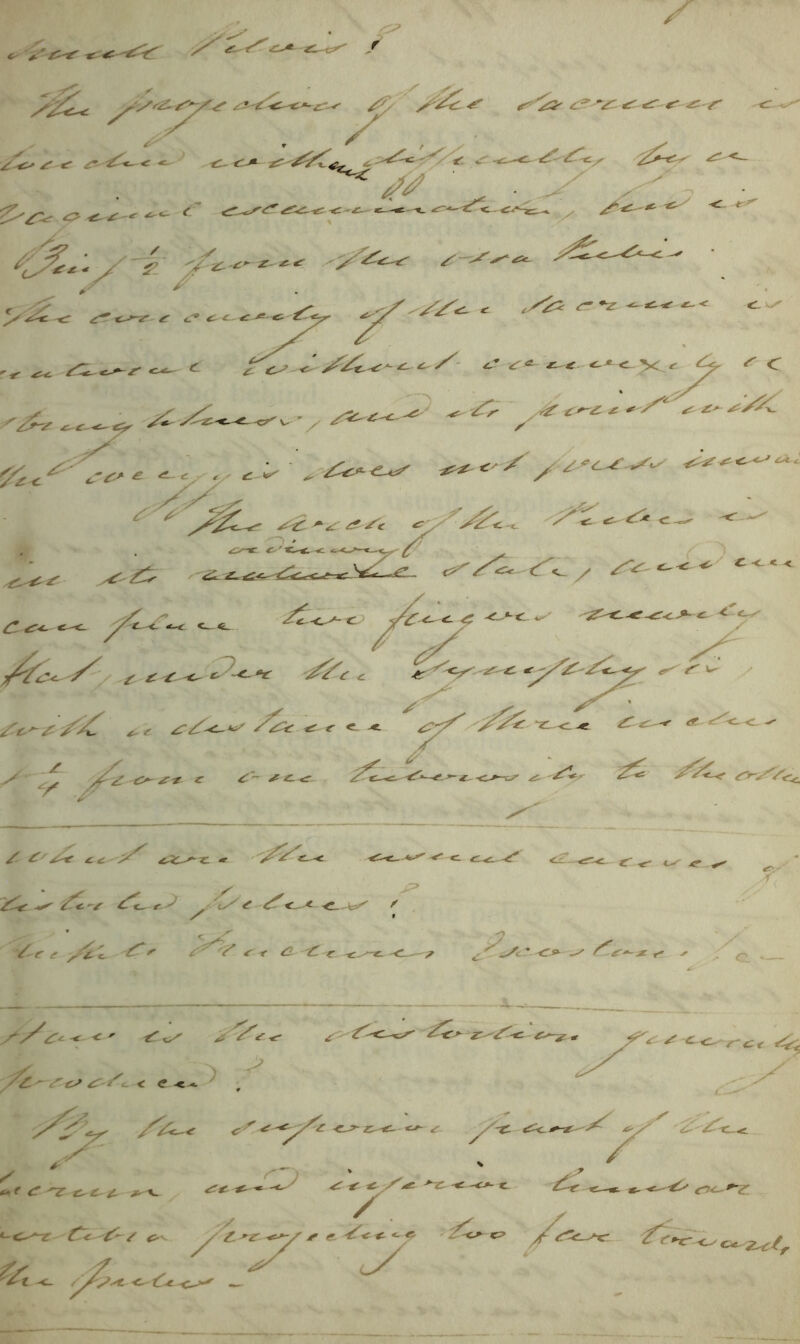 Female Pelvis?
The projection of the sacrum is
touched without difficulty by a
Vaginal examination, and is
3in / ½ from the ossa Pubis
The concavity of the sacrum is
natural without convexity or
and its point with
the coccygis does not press inwa
The arch of the Pubes is
in its ordinary state, and we
can place two fingers nearly
flat, under the symphysis,
with a distance of three inches
/ ¼ from one tuberosity to the othe
What are the usual causes of
distorted pelvises?
Rickets Fractures Exostosis
How is the distortion generally
produced?
By the superior part of the
sacrum, and inferior lumbar
vertebra projecting too far towards
the pubes –